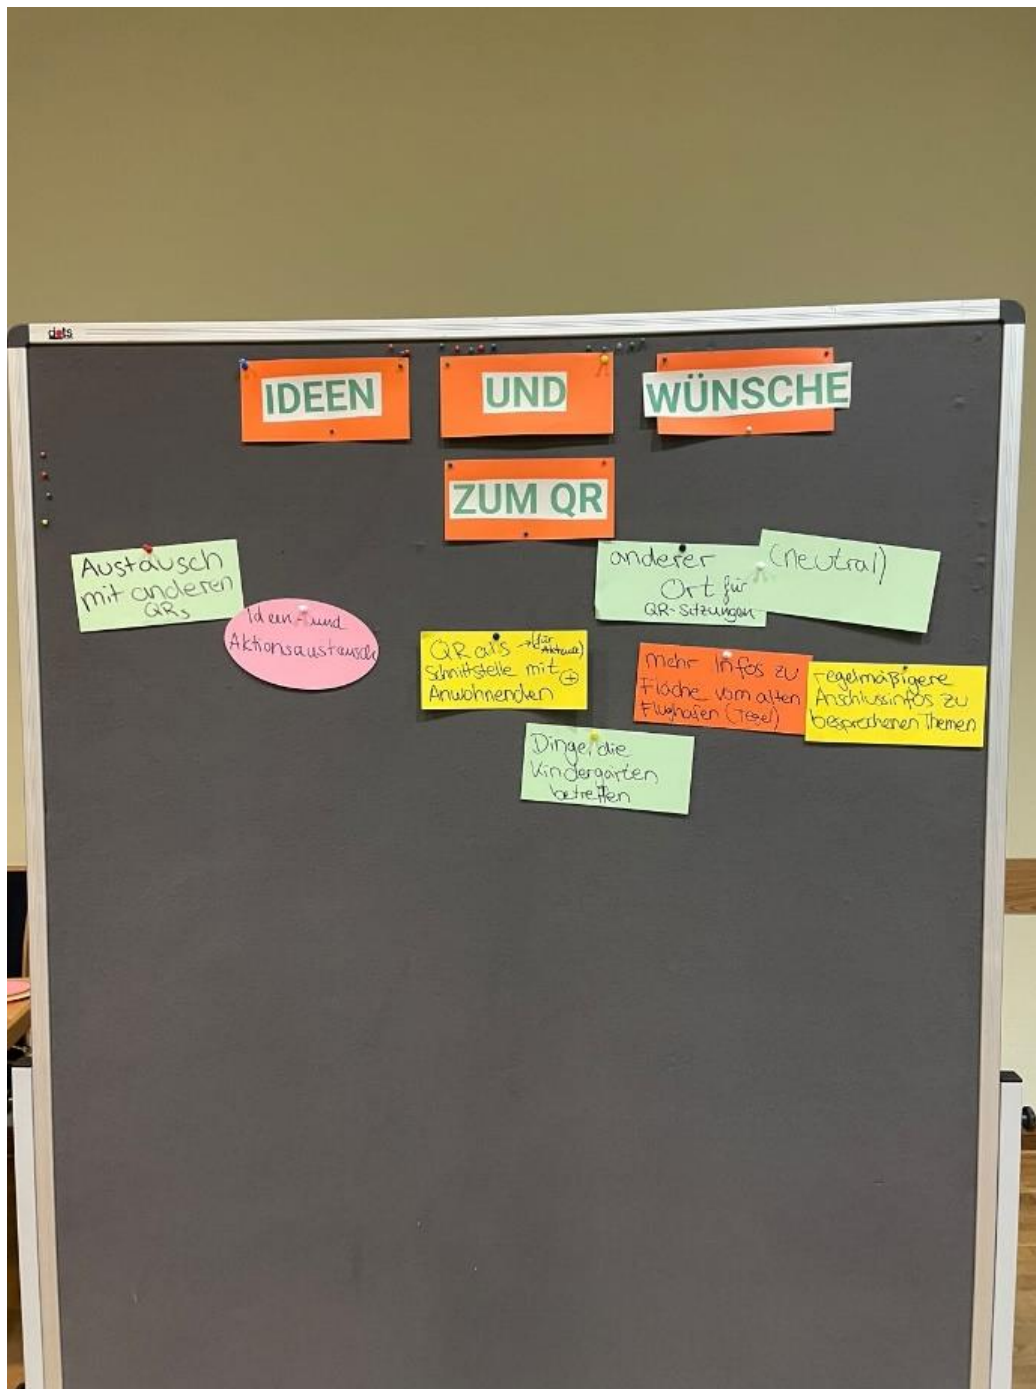 dots
IDEEN UND WÜNSCHE
ZUM QR
Austausch
mit anderen
QRs
Ideen- und
Aktionsaustausch
anderer
Ort für
QR-Sitzungen
(neutral)
QR als → (für
Schnittstelle mit ⊕
Anwohnenden
mehr Infos zu
Fläche vom alten
Flughafen (Tegel)
regelmäßigere
Anschlussinfos zu
besprochenen Themen
Dinge, die
Kindergärten
betreffen